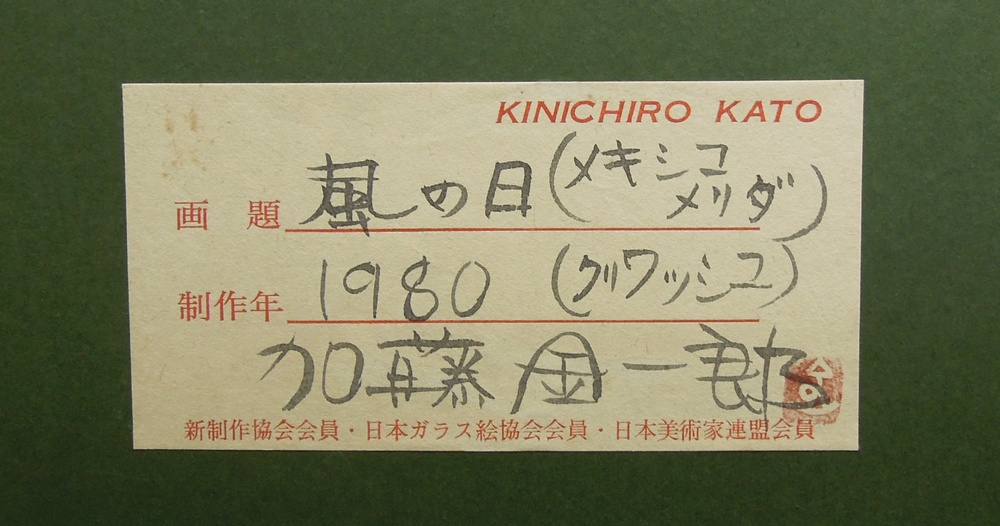 KINICHIRO KATO
画題 風の日(メキシコ メリダ)
制作年 1980 (グワッシュ)
加藤金一郎
新制作協会会員・日本ガラス絵協会会員・日本美術家連盟会員